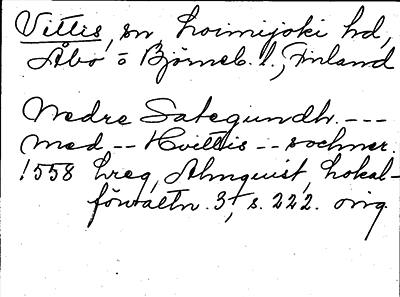 Vittis, sn, Loimijoki hd,
Åbo o Björneb. l., Finland
Nedre Sategundh. ---
med -- Hvittis -- sochner.
1558 Lreg, Almquist, Lokal-
förvaltn. 3, s. 222. orig.